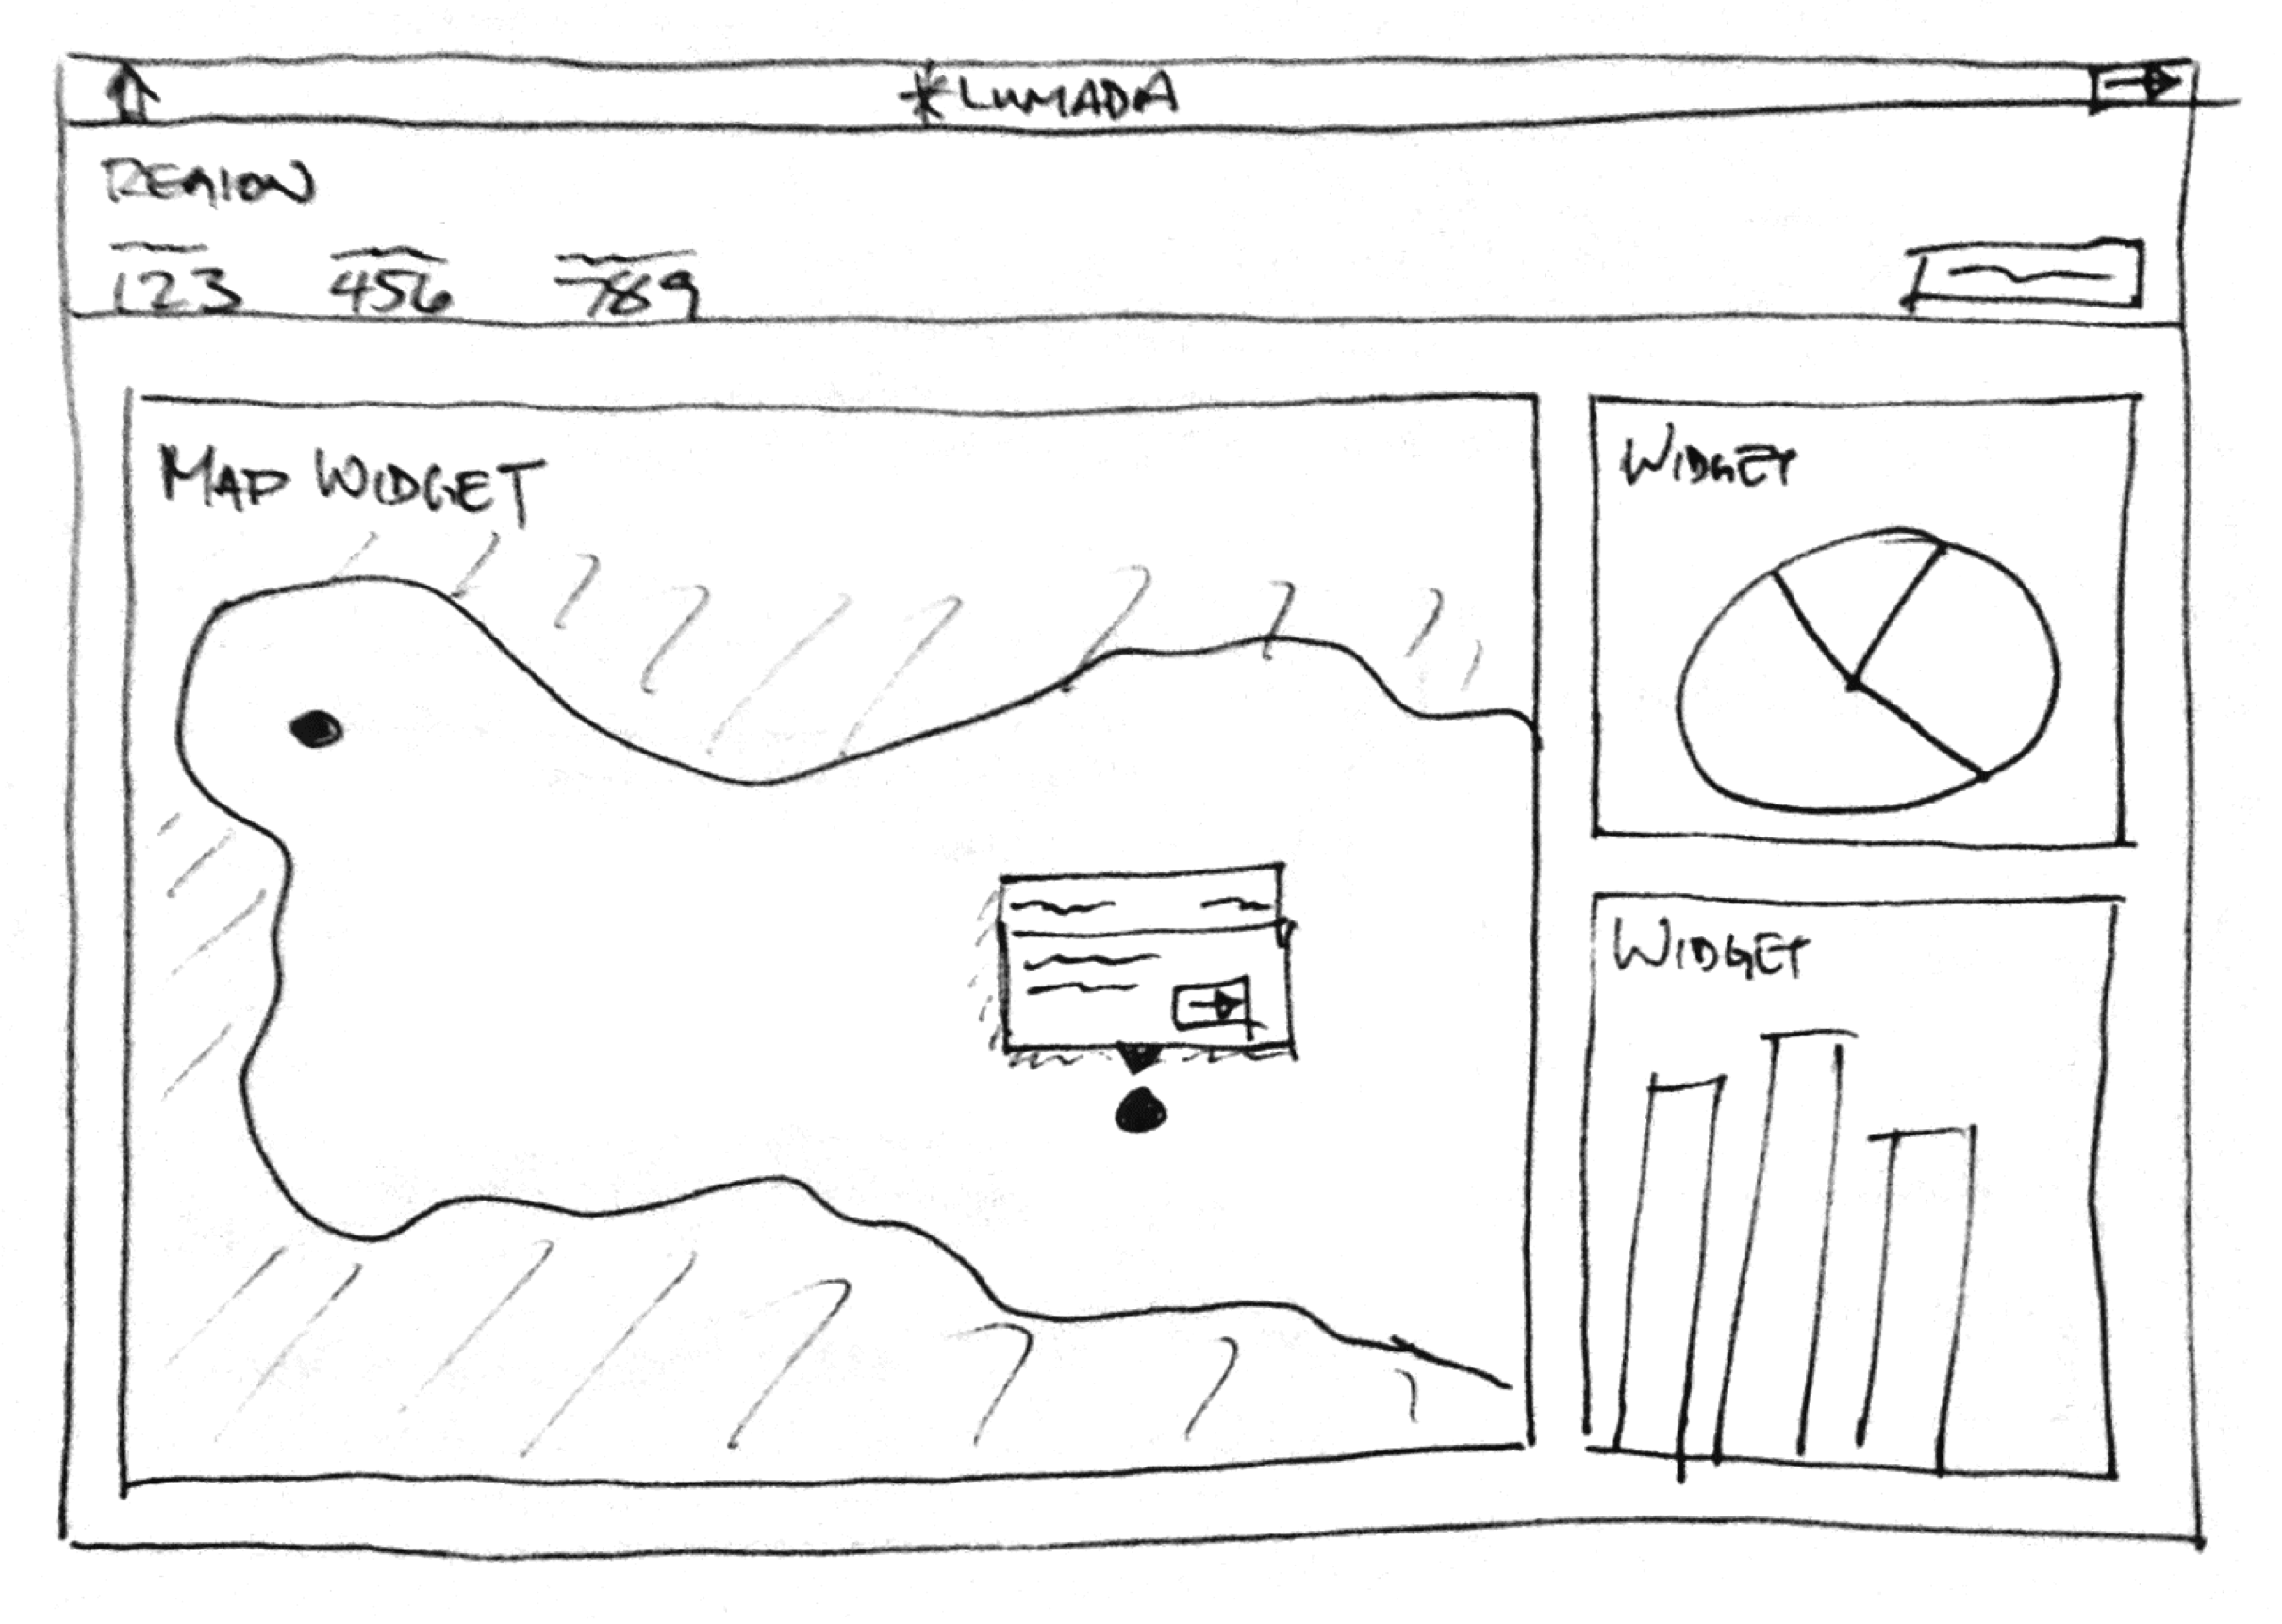 *LUMADA
REGION
123 456 789
MAP WIDGET
WIDGET
WIDGET